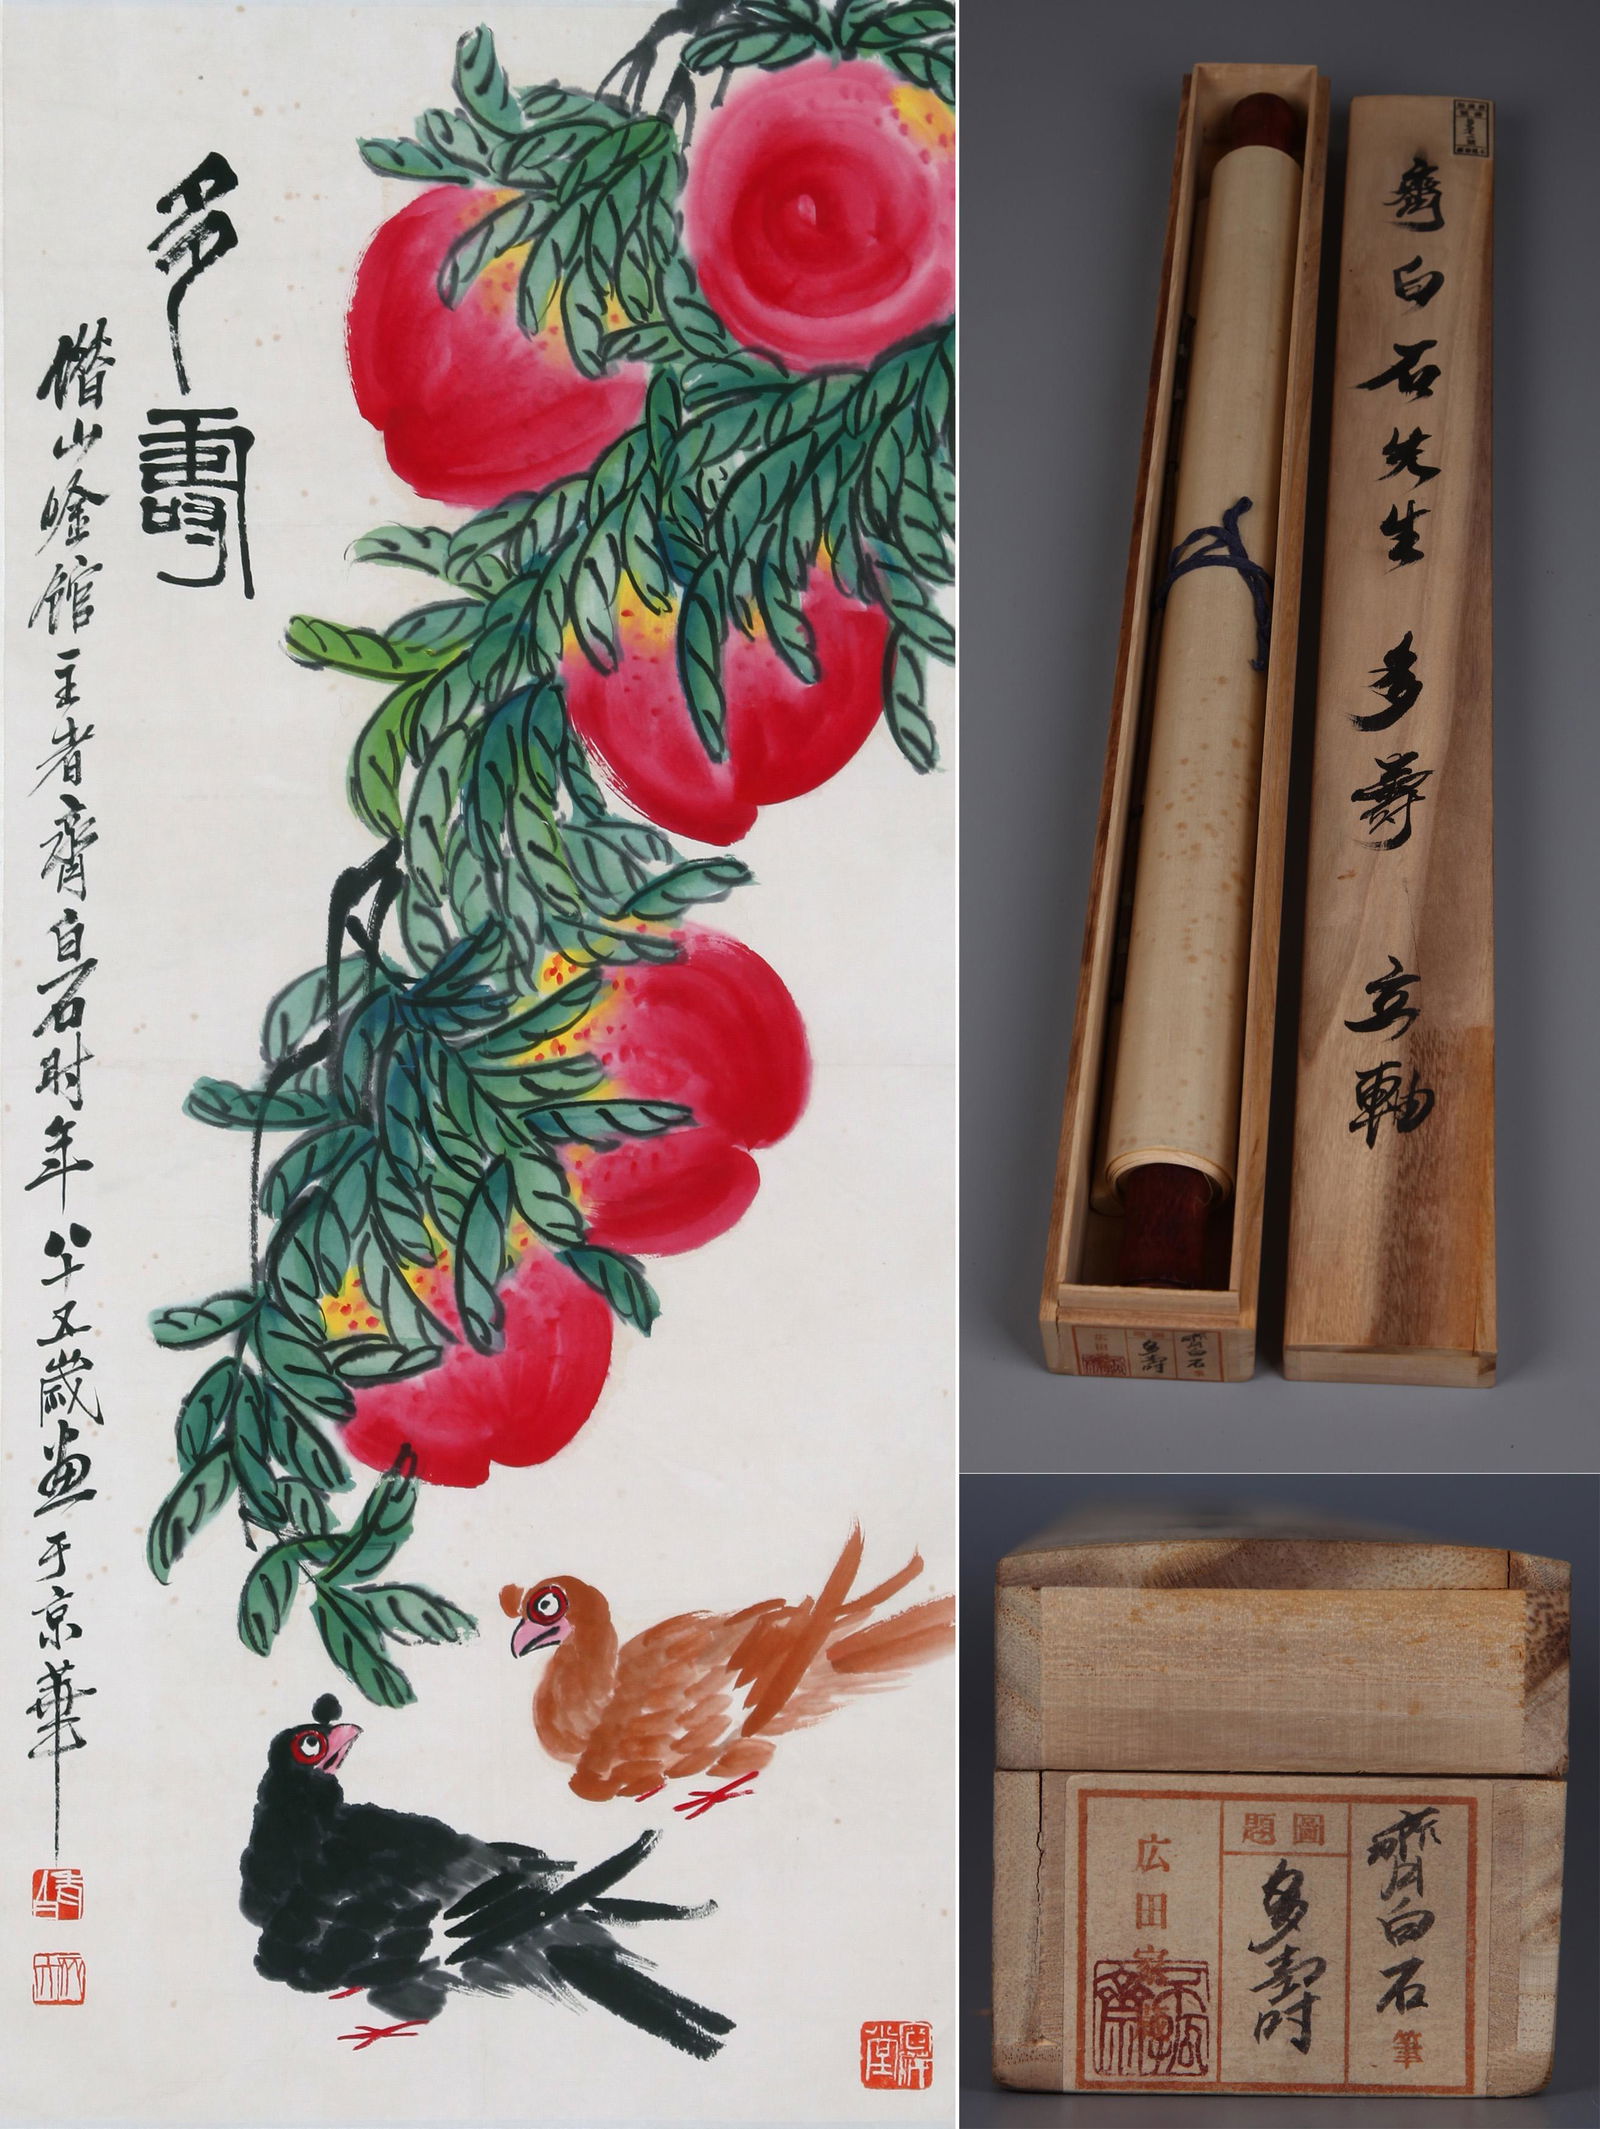 多壽
借山唫館主者齊白石时年八十五歲畫于京華
齊白石先生 多壽 立軸
齊白石
多壽
広田
齊白石筆
圖題
多壽
広田